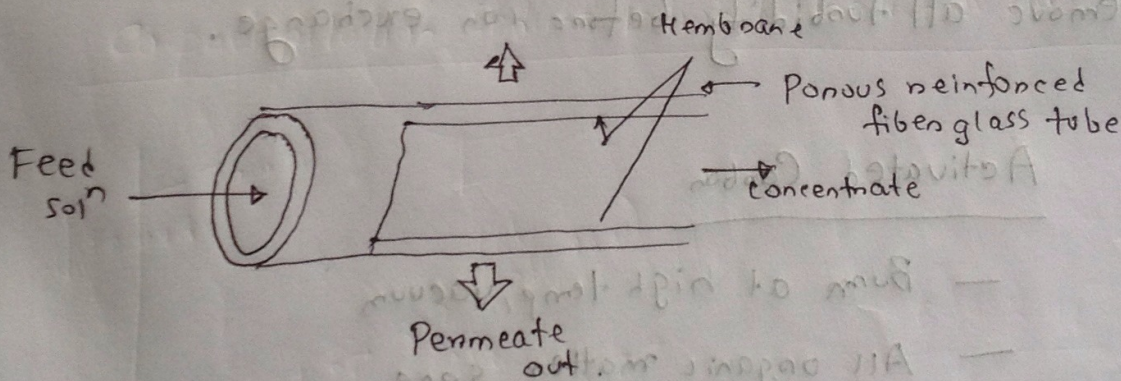 Membrane
Porous reinforced
fiber glass tube
Feed
solⁿ
Concentrate
Permeate
out.